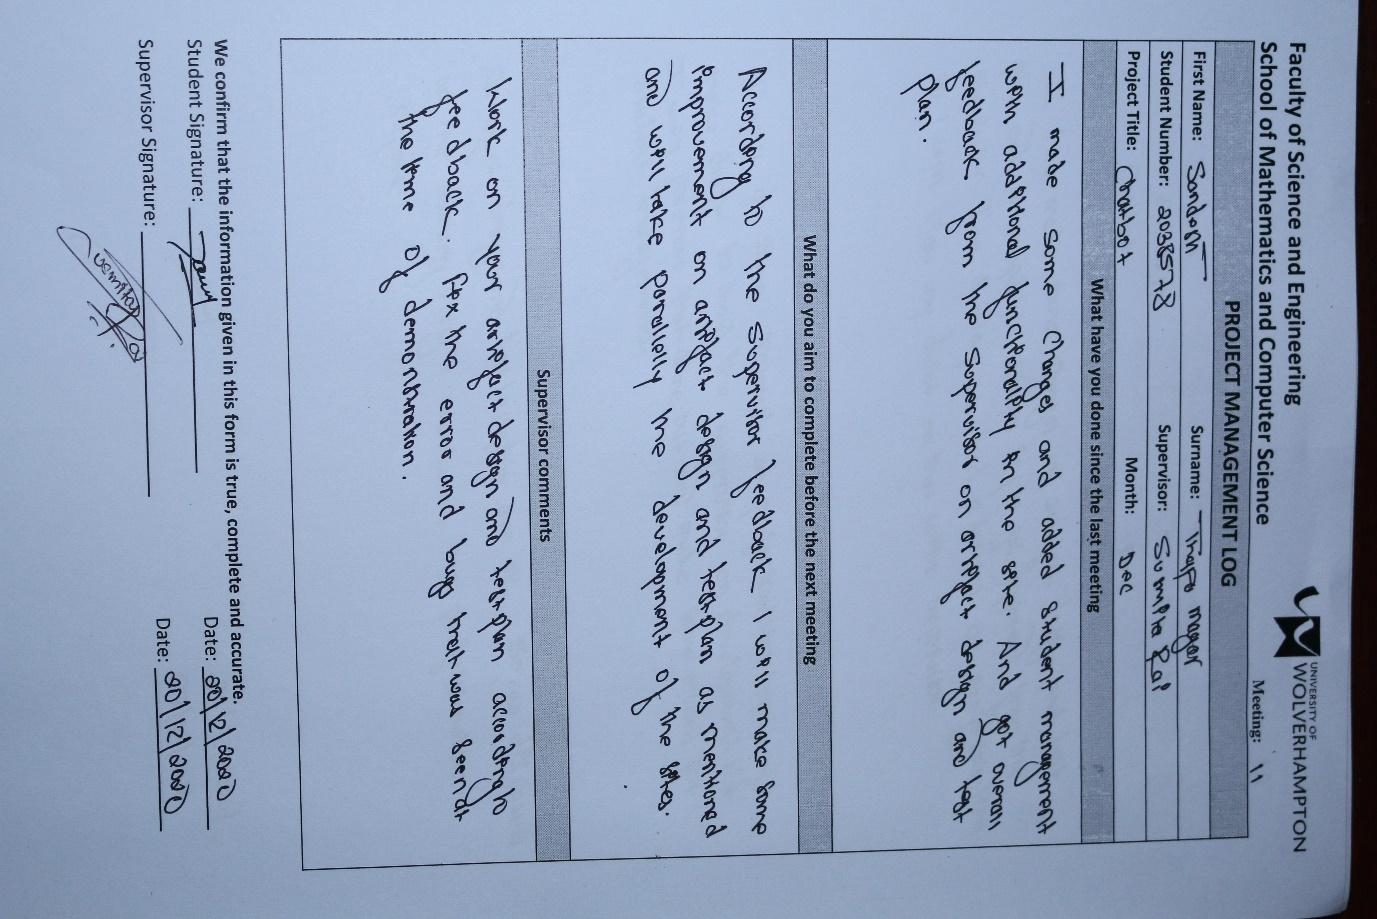 Faculty of Science and Engineering
School of Mathematics and Computer Science
UNIVERSITY OF
WOLVERHAMPTON
Meeting: 11
PROJECT MANAGEMENT LOG
First Name: Surname: Thapa magar
Student Number: 2038578 Supervisor: Sumita Rai
Project Title: Chatbot Month: Dec
What have you done since the last meeting
I made some changes and added student management
with additional functionality in the site. And got overall
feedback from the supervisor on artefact design and test
plan.
What do you aim to complete before the next meeting
According to the supervisor feedback I will make some
improvement on artefact design and testplan as mentioned
and will take parallelly the development of the sites.
Supervisor comments
Work on your artefact design and testplan according to
feedback. Fix the error and bugs that was seen at
the time of demonstration.
We confirm that the information given in this form is true, complete and accurate.
Student Signature: Date: 20/12/2020
Supervisor Signature: Date: 20/12/2020